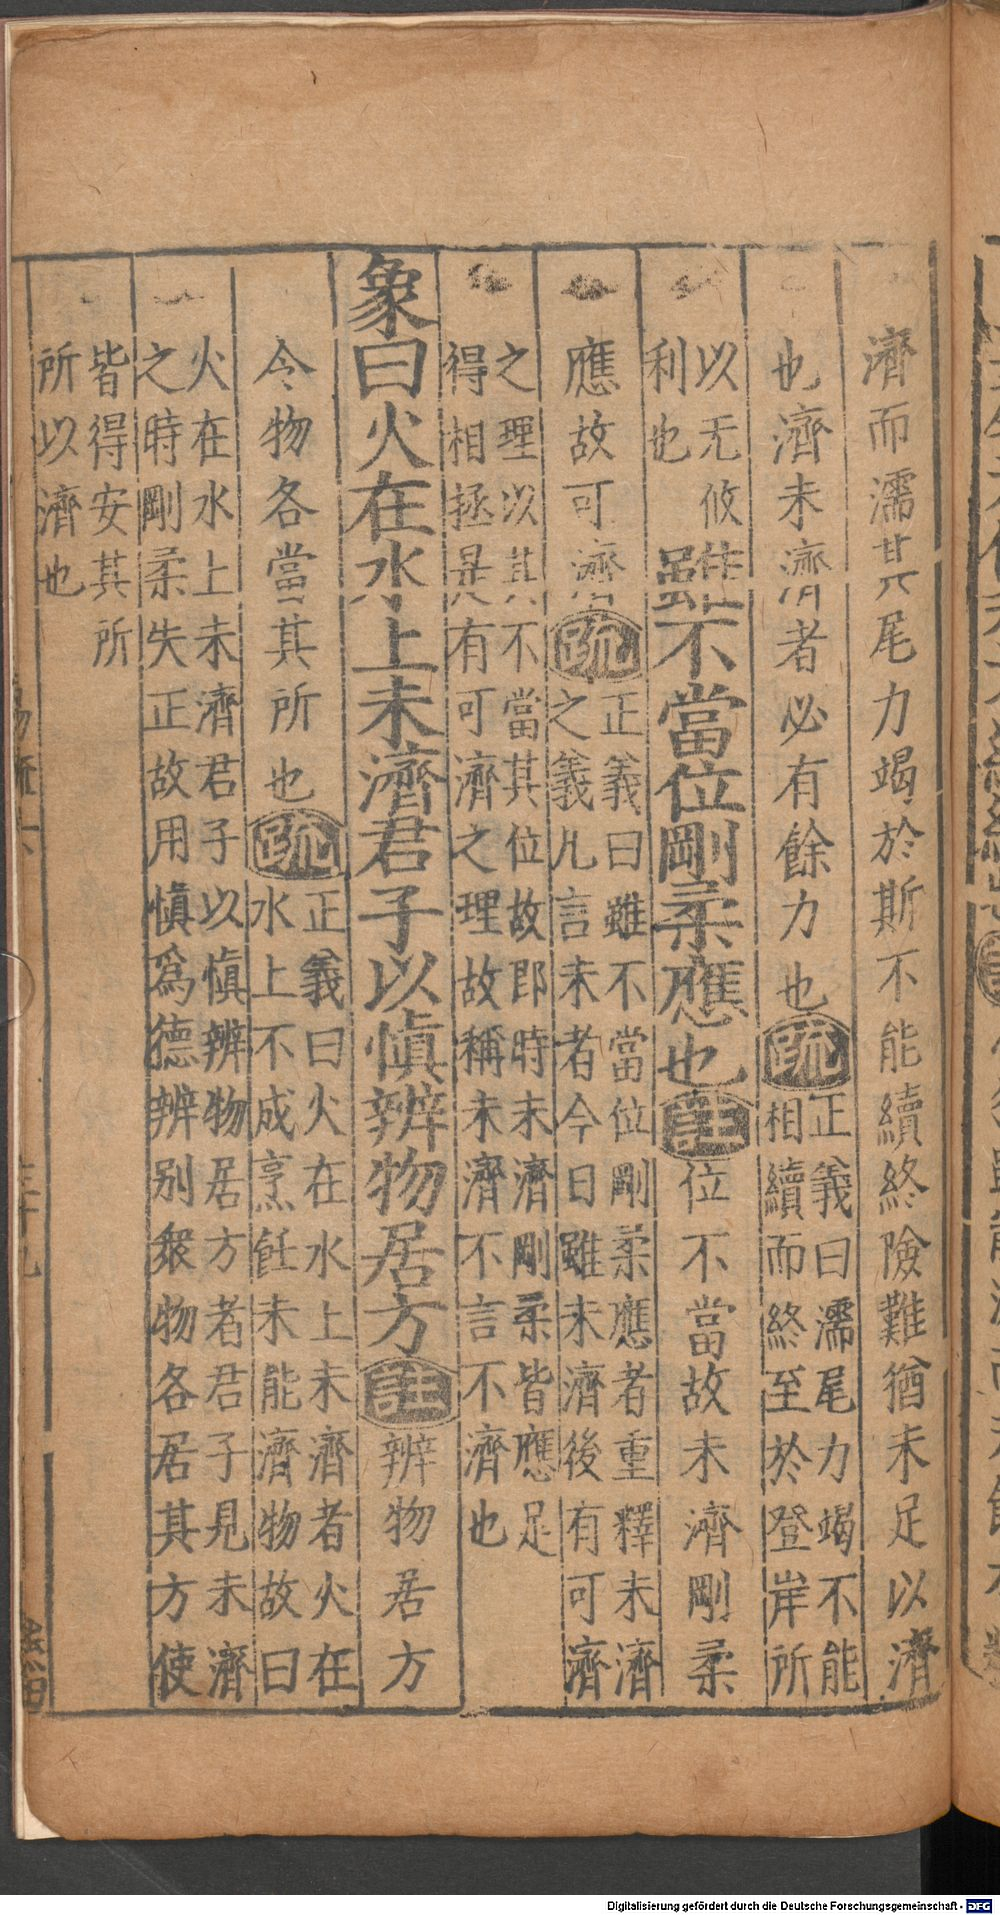 濟而濡其尾力竭於斯不能續終險難猶未足以濟
也濟未濟者必有餘力也疏正義曰濡尾力竭不能
相續而終至於登岸所
以无攸
利也
雖不當位剛柔應也註位不當故未濟剛柔
應故可濟疏正義曰雖不當位剛柔應者重釋未濟
之義凡言未者今日雖未濟後有可濟
之理以其不當其位故即時未濟剛柔皆應足
得相拯是有可濟之理故稱未濟不言不濟也
象曰火在水上未濟君子以慎辨物居方註辨物居方
令物各當其所也疏正義曰火在水上未濟者火在
水上不成烹飪未能濟物故曰
火在水上未濟君子以慎辨物居方者君子見未濟
之時剛柔失正故用慎為德辨別衆物各居其方使
皆得安其所
所以濟也
Digitalisierung gefördert durch die Deutsche Forschungsgemeinschaft - DFG